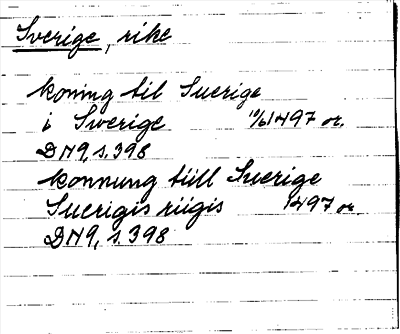 Sverige, rike
koning til Suerige
i Swerige 19/6 1497 or.
DN9, s. 398
konnung tiill Suerige
Suerigis riigis 1497 or
DN9, s. 398